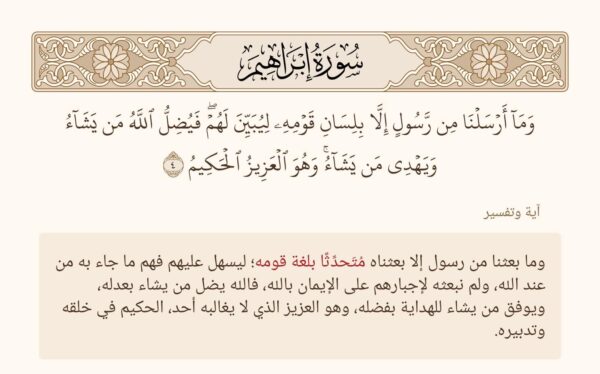 سُورَةُ إِبْرَاهِيمَ
وَمَآ أَرْسَلْنَا مِن رَّسُولٍ إِلَّا بِلِسَانِ قَوْمِهِۦ لِيُبَيِّنَ لَهُمْۖ فَيُضِلُّ ٱللَّهُ مَن يَشَآءُ
وَيَهْدِى مَن يَشَآءُۚ وَهُوَ ٱلْعَزِيزُ ٱلْحَكِيمُ ٤
آية وتفسير
وما بعثنا من رسول إلا بعثناه مُتَحدِّثًا بلغة قومه؛ ليسهل عليهم فهم ما جاء به من
عند الله، ولم نبعثه لإجبارهم على الإيمان بالله، فالله يضل من يشاء بعدله،
ويوفق من يشاء للهداية بفضله، وهو العزيز الذي لا يغالبه أحد، الحكيم في خلقه
وتدبيره.